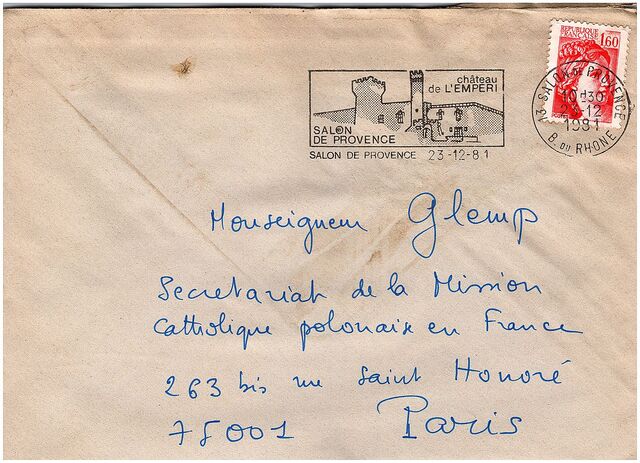 REPUBLIQUE
FRANÇAISE
1,60
château
de L'EMPERI
SALON
DE PROVENCE
SALON DE PROVENCE 23-12-81
13 SALON DE PROVENCE
10H30
23-12
1981
B. DU RHONE
Monseigneur Glemp
Secretariat de la Mission
Catholique polonaise en France
263 bis rue Saint Honoré
75001 Paris